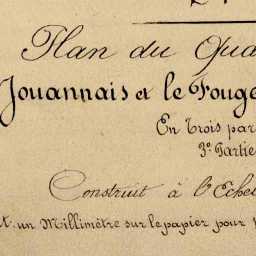 Plan du Qua
Jouannais et le Fouge
En Trois par
3e Partie
Construit à l'Echel
t. un Millimètre sur le papier pour